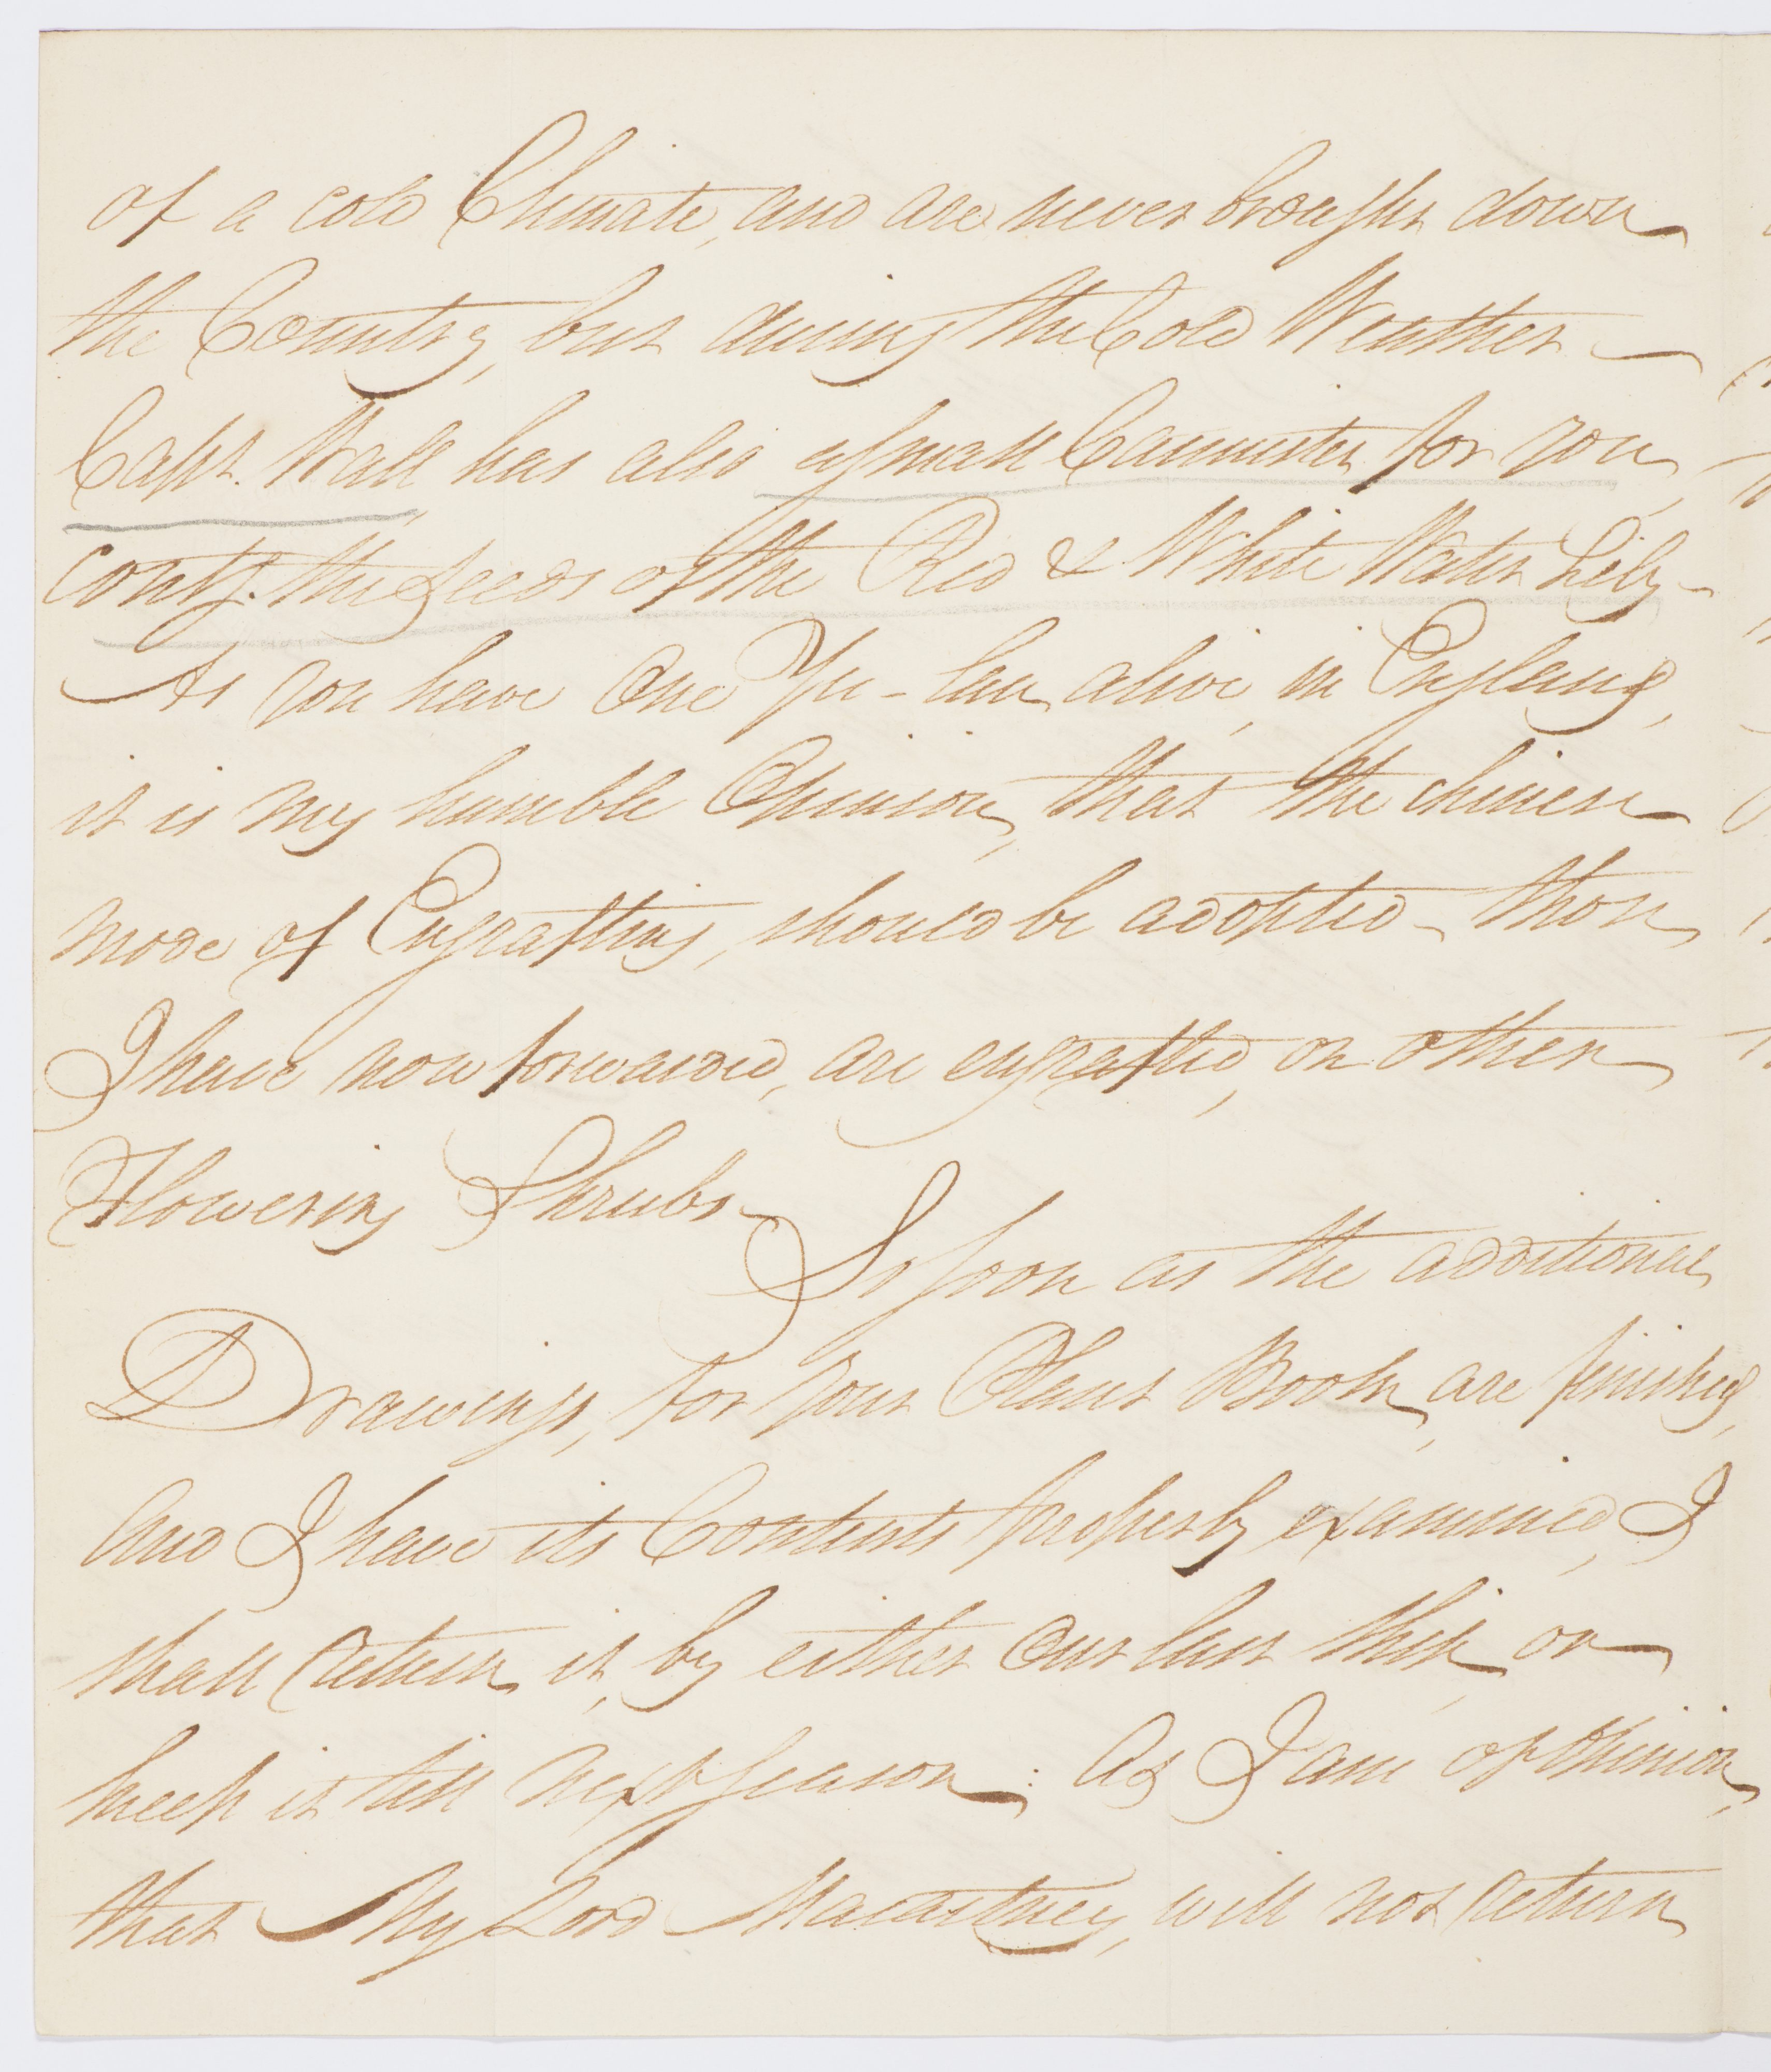 of a cold Climate, and are never brought down
the Country, but during the Cold Weather
Capt. Wall has also a small Cannister for you,
contg. the seeds of the Red & White Water Lily -
As you have One Yu-lan alive, in England,
it is my humble Opinion, that the chinese
mode of Engrafting, should be adopted - those
I have now forwarded, are engrafted, on other
Flowering Shrubs -
So soon as the additional
Drawings, for your Plant Book, are finished,
And I have its Contents properly examined, I
shall return it, by either Our last ship, or
keep it till next season; As I am of opinion,
that My Lord Macartney, will not return